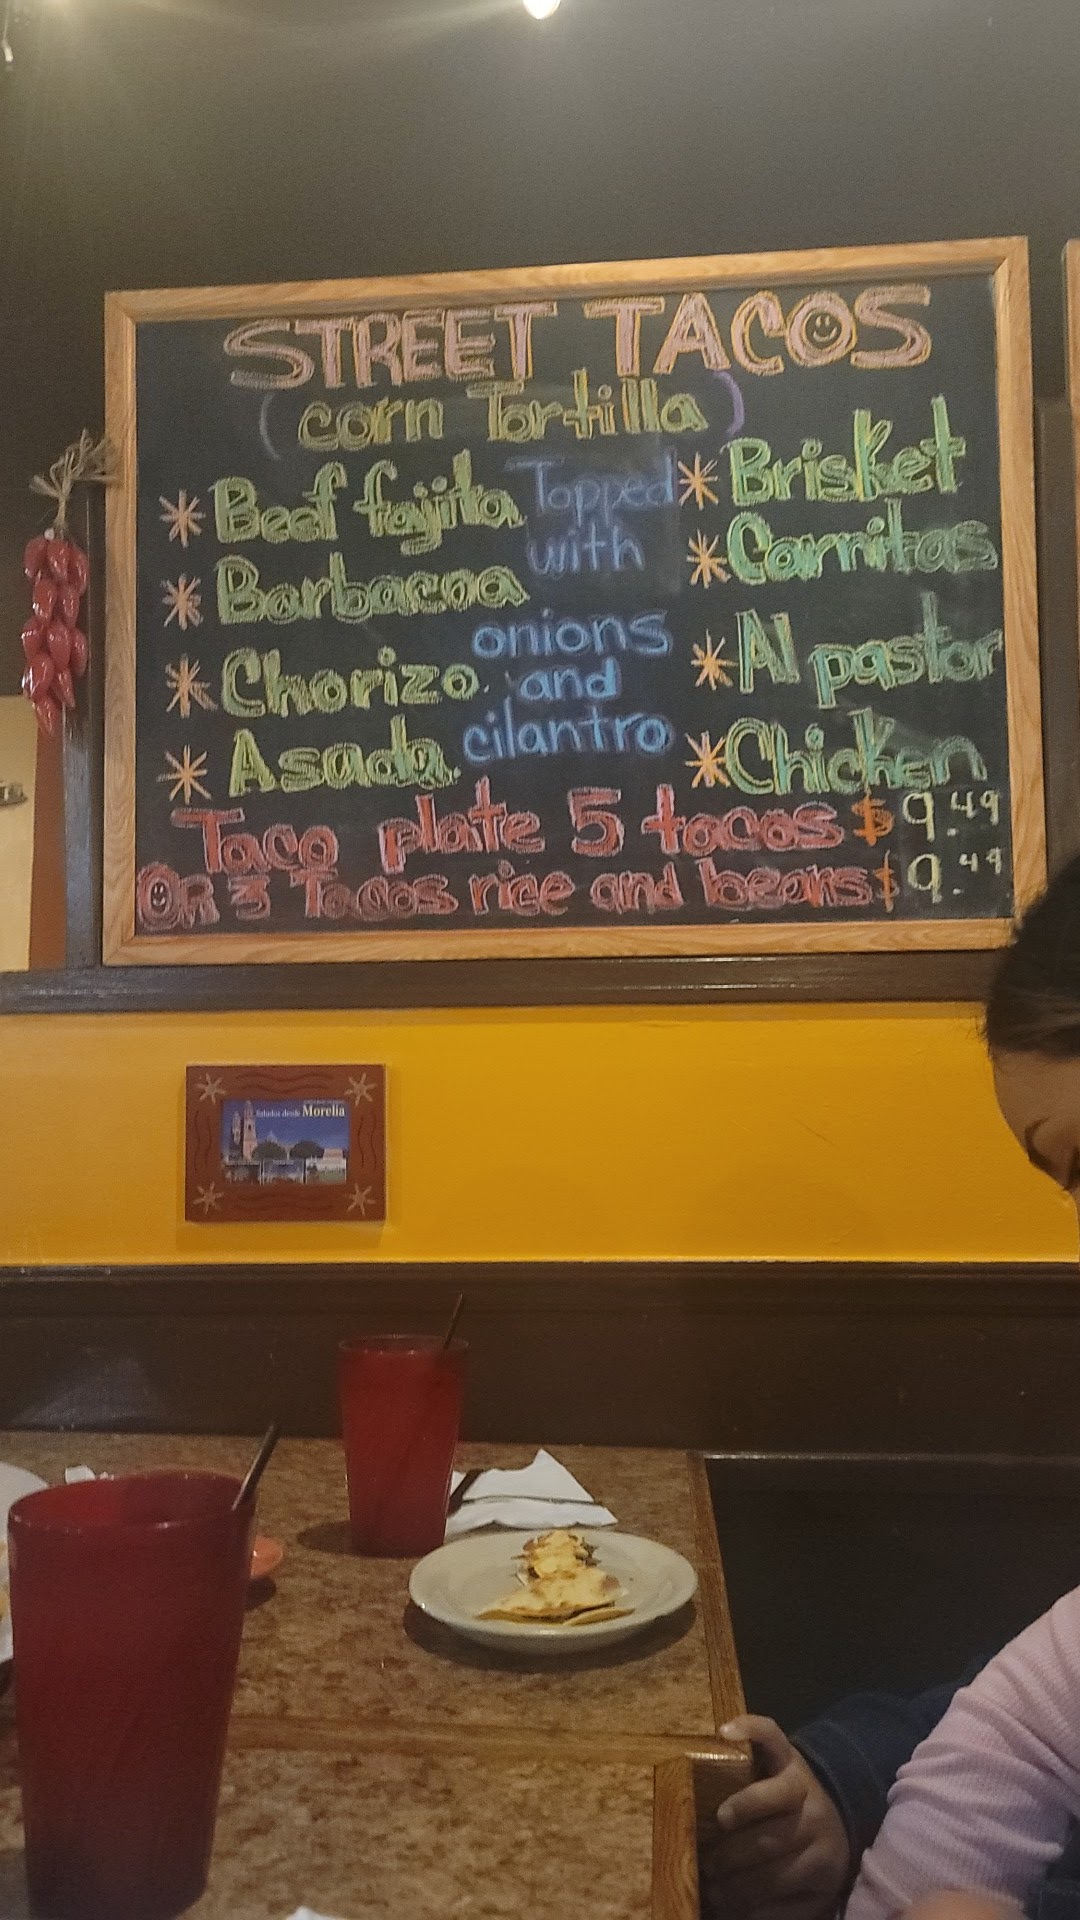 STREET TACOS
(corn Tortilla)
* Beef fajita
* Barbacoa
* Chorizo
* Asada
Topped
with
onions
and
cilantro
* Brisket
* Carnitas
* Al pastor
* Chicken
Taco plate 5 tacos $9.49
OR 3 Tacos rice and beans $9.49
Saludos desde Morelia